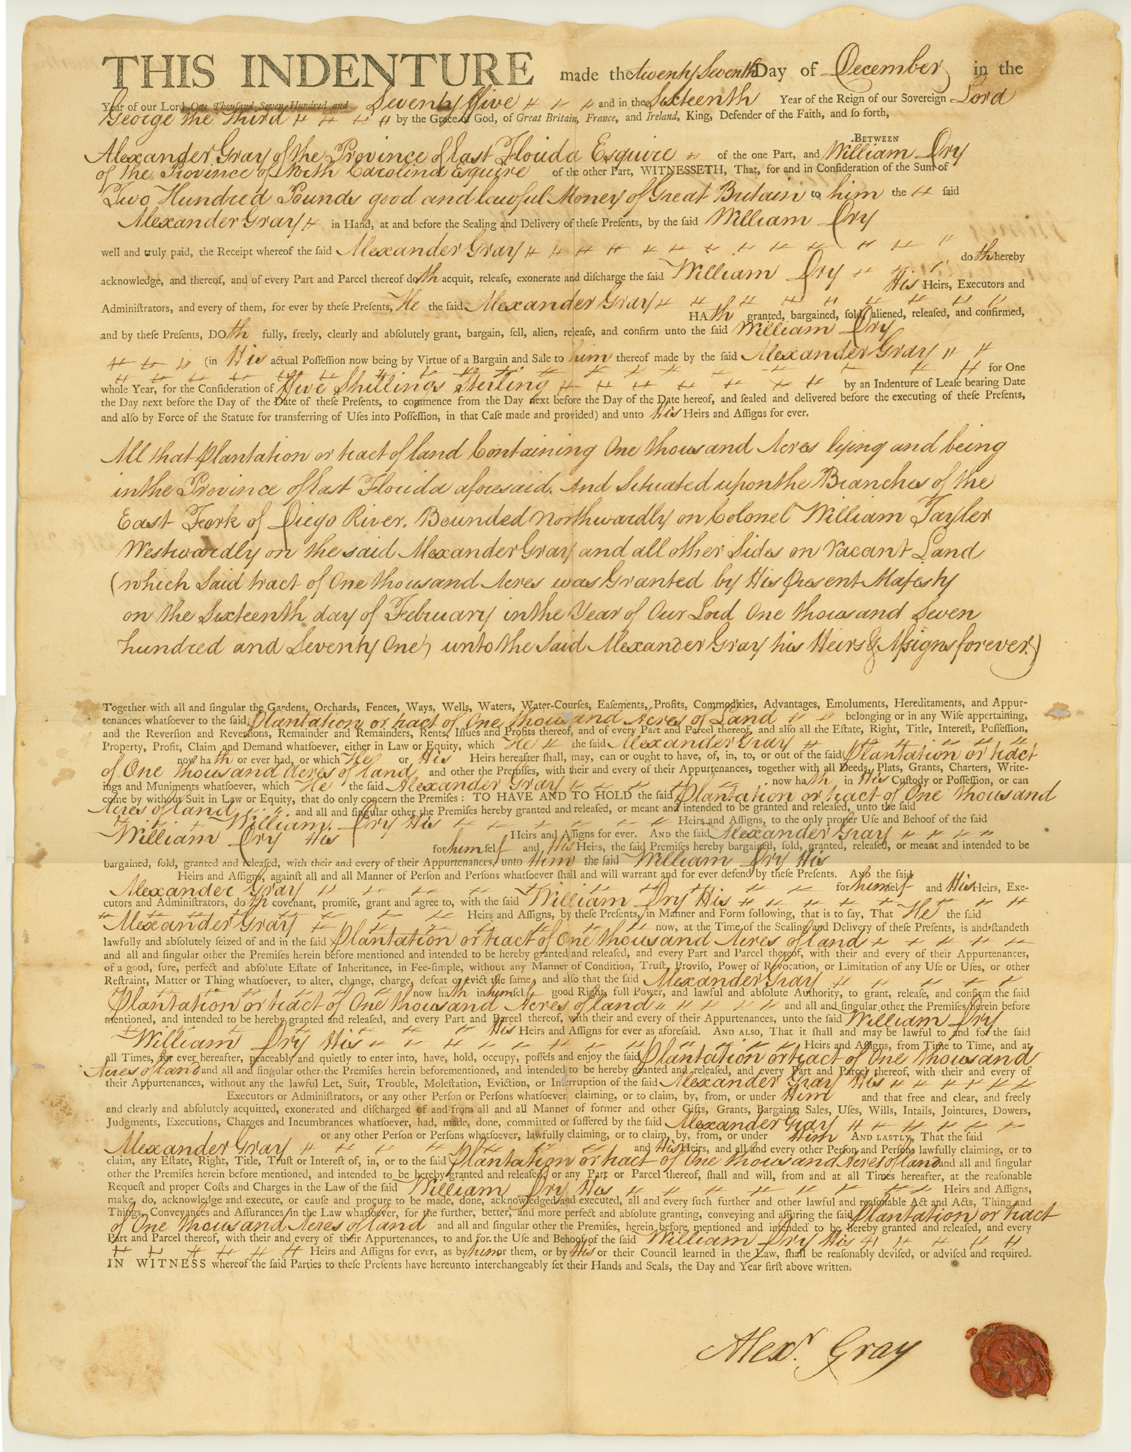 THIS INDENTURE made the twenty Seventh Day of December in the
Year of our Lord One Thousand Seven Hundred and Seventy ffive and in the Sixteenth Year of the Reign of our Sovereign Lord
George the Third by the Grace of God, of Great Britain, France, and Ireland, King, Defender of the Faith, and so forth,
BETWEEN
Alexander Gray of the Province of East Florida Esquire of the one Part, and William Dry
of the Province of North Carolina Esquire of the other Part, WITNESSETH, That, for and in Consideration of the Sum of
Two Hundred Pounds good and lawful Money of Great Britain to him the said
Alexander Gray in Hand, at and before the Sealing and Delivery of these Presents, by the said William Dry
well and truly paid, the Receipt whereof the said Alexander Gray doth hereby
acknowledge, and thereof, and of every Part and Parcel thereof doth acquit, release, exonerate and discharge the said William Dry His Heirs, Executors and
Administrators, and every of them, for ever by these Presents, He the said Alexander Gray
HAth granted, bargained, sold, aliened, released, and confirmed,
and by these Presents, DOth fully, freely, clearly and absolutely grant, bargain, sell, alien, release, and confirm unto the said William Dry
(in His actual Possession now being by Virtue of a Bargain and Sale to him thereof made by the said Alexander Gray
for One
whole Year, for the Consideration of ffive Shillings Sterling by an Indenture of Lease bearing Date
the Day next before the Day of the Date of these Presents, to commence from the Day next before the Day of the Date hereof, and sealed and delivered before the executing of these Presents,
and also by Force of the Statute for transferring of Uses into Possession, in that Case made and provided) and unto His Heirs and Assigns for ever.
All that Plantation or tract of land Containing One thousand Acres lying and being
in the Province of East Florida aforesaid. And Situated upon the Branches of the
East Fork of Diego River. Bounded Northwardly on Colonel William Tayler
Westwardly on the said Alexander Gray and all other Sides on Vacant Land
(which Said tract of One thousand Acres was Granted by His Present Majesty
on the Sixteenth day of February in the Year of Our Lord One thousand Seven
hundred and Seventy One) unto the Said Alexander Gray his Heirs & Assigns forever.)
Together with all and singular the Gardens, Orchards, Fences, Ways, Wells, Waters, Water-Courses, Easements, Profits, Commodities, Advantages, Emoluments, Hereditaments, and Appur-
tenances whatsoever to the said Plantation or tract of One thousand Acres of Land belonging or in any Wise appertaining,
and the Reversion and Reversions, Remainder and Remainders, Rents, Issues and Profits thereof, and of every Part and Parcel thereof, and also all the Estate, Right, Title, Interest, Possession,
Property, Profit, Claim and Demand whatsoever, either in Law or Equity, which He the said Alexander Gray
now hath or ever had, or which He or His Heirs hereafter shall, may, can or ought to have, of, in, to, or out of the said Plantation or tract
of One thousand Acres of land and other the Premises, with their and every of their Appurtenances, together with all Deeds, Plats, Grants, Charters, Write-
ings and Muniments whatsoever, which He the said Alexander Gray now hath in His Custody or Possession, or can
come by without Suit in Law or Equity, that do only concern the Premises: TO HAVE AND TO HOLD the said Plantation or tract of One thousand
Acres of land and all and singular other the Premises hereby granted and released, or meant and intended to be granted and released, unto the said
William Dry His Heirs and Assigns, to the only proper Use and Behoof of the said
William Dry His Heirs and Assigns for ever. AND the said Alexander Gray
for himself and His Heirs, the said Premises hereby bargained, sold, granted, released, or meant and intended to be
bargained, sold, granted and released, with their and every of their Appurtenances, unto Him the said William Dry His
Heirs and Assigns, against all and all Manner of Person and Persons whatsoever shall and will warrant and for ever defend by these Presents. AND the said
Alexander Gray for himself and His Heirs, Exe-
cutors and Administrators, doth covenant, promise, grant and agree to, with the said William Dry His
Heirs and Assigns, by these Presents, in Manner and Form following, that is to say, That He the said
Alexander Gray now, at the Time of the Sealing and Delivery of these Presents, is and standeth
lawfully and absolutely seized of and in the said Plantation or tract of One thousand Acres of land
and all and singular other the Premises herein before mentioned and intended to be hereby granted and released, and every Part and Parcel thereof, with their and every of their Appurtenances,
of a good, sure, perfect and absolute Estate of Inheritance, in Fee-simple, without any Manner of Condition, Trust, Proviso, Power of Revocation, or Limitation of any Use or Uses, or other
Restraint, Matter or Thing whatsoever, to alter, change, charge, defeat or evict the same, and also that the said Alexander Gray
now hath in himself good Right, full Power, and lawful and absolute Authority, to grant, release, and confirm the said
Plantation or tract of One thousand Acres of land and all and singular other the Premises herein before
mentioned, and intended to be hereby granted and released, and every Part and Parcel thereof, with their and every of their Appurtenances, unto the said William Dry
His Heirs and Assigns for ever as aforesaid. AND ALSO, That it shall and may be lawful to and for the said
William Dry His Heirs and Assigns, from Time to Time, and at
all Times, for ever hereafter, peaceably and quietly to enter into, have, hold, occupy, possess and enjoy the said Plantation or tract of One thousand
Acres of land and all and singular other the Premises herein beforementioned, and intended to be hereby granted and released, and every Part and Parcel thereof, with their and every of
their Appurtenances, without any the lawful Let, Suit, Trouble, Molestation, Eviction, or Interruption of the said Alexander Gray His
Executors or Administrators, or any other Person or Persons whatsoever claiming, or to claim, by, from, or under Him and that free and clear, and freely
and clearly and absolutely acquitted, exonerated and discharged of and from all and all Manner of former and other Gifts, Grants, Bargains, Sales, Uses, Wills, Intails, Jointures, Dowers,
Judgments, Executions, Charges and Incumbrances whatsoever, had, made, done, committed or suffered by the said Alexander Gray
or any other Person or Persons whatsoever, lawfully claiming, or to claim, by, from, or under Him AND LASTLY, That the said
Alexander Gray and His Heirs, and all and every other Person and Persons lawfully claiming, or to
claim, any Estate, Right, Title, Trust or Interest of, in, or to the said Plantation or tract of One thousand Acres of land and all and singular
other the Premises herein before mentioned, and intended to be hereby granted and released, or any Part or Parcel thereof, shall and will, from and at all Times hereafter, at the reasonable
Request and proper Costs and Charges in the Law of the said William Dry His Heirs and Assigns,
make, do, acknowledge and execute, or cause and procure to be made, done, acknowledged and executed, all and every such further and other lawful and reasonable Act and Acts, Thing and
Things, Conveyances and Assurances in the Law whatsoever, for the further, better, and more perfect and absolute granting, conveying and assuring the said Plantation or tract
of One thousand Acres of land and all and singular other the Premises, herein before mentioned and intended to be hereby granted and released, and every
Part and Parcel thereof, with their and every of their Appurtenances, to and for the Use and Behoof of the said William Dry His
Heirs and Assigns for ever, as by him or them, or by His or their Council learned in the Law, shall be reasonably devised, or advised and required.
IN WITNESS whereof the said Parties to these Presents have hereunto interchangeably set their Hands and Seals, the Day and Year first above written.
Alexr. Gray